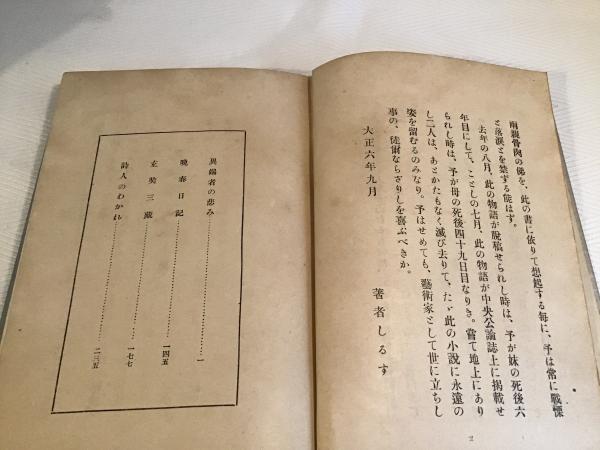 両親骨肉の俤を、此の書に依りて想起する毎に、予は常に戰慄
と落淚とを禁ずる能はず。
去年の八月、此の物語が脫稿せられし時は、予が妹の死後六
年目にして、ことしの七月、此の物語が中央公論誌上に掲載せ
られし時は、予が母の死後四十九日目なりき。嘗て地上にあり
し二人は、あとかたもなく滅び去りて、たゞ此の小説に永遠の
姿を留むるのみなり。予はせめても、藝術家として世に立ちし
事の、徒爾ならざりしを喜ぶべきか。
大正六年九月
著者しるす
2
異端者の悲み……………………一
晩春日記……………………一四五
玄奘三藏……………………一七七
詩人のわかれ……………………二三五